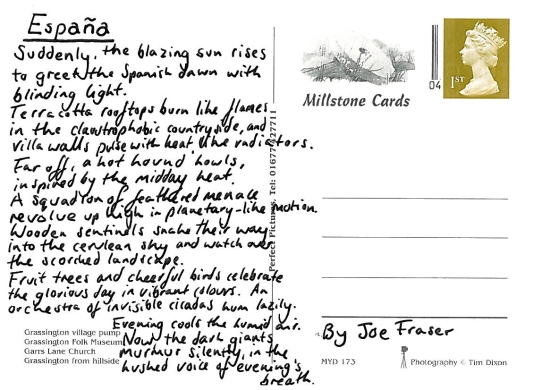 España
Suddenly, the blazing sun rises
to greet the Spanish dawn with
blinding light.
Terracotta rooftops burn like flames
in the claustrophobic countryside, and
villa walls pulse with heat like radiators.
Far off, a hot hound howls,
inspired by the midday heat.
A squadron of feathered menace
revolve up high in planetary-like motion.
Wooden sentinels snake their way
into the cerulean sky and watch over
the scorched landscape.
Fruit trees and cheerful birds celebrate
the glorious day in vibrant colours. An
orchestra of invisible cicadas hum lazily.
Evening cools the humid air.
Now the dark giants
murmur silently, in the
hushed voice of evening's
breath.
Grassington village pump
Grassington Folk Museum
Garrs Lane Church
Grassington from hillside
Perfect Pictures. Tel: 01677 427711
Millstone Cards
04
1ST
By Joe Fraser
MYD 173
Photography © Tim Dixon